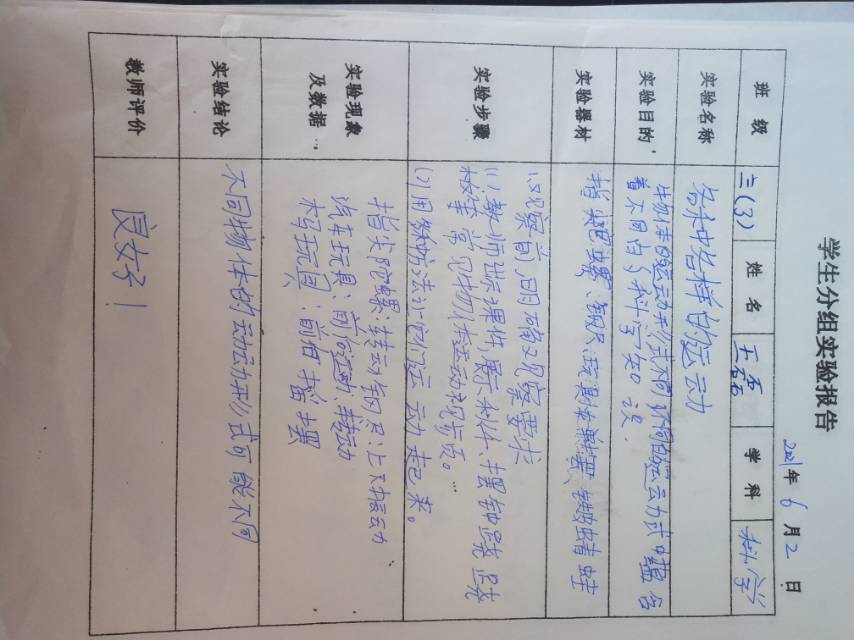 学生分组实验报告
2021年6月2日
班 级 三(3) 姓 名 王磊 学 科 科学
实验名称 各种各样的运动
实验目的 物体的运动形式不同 不同的运动方式中蕴含
着不同的科学知识.
实验器材 指尖陀螺、钢尺
实验步骤 观察前,明确观察要求
(1)教师出示课件展示
常见物体运动现象。
(2)用多种方法让它们运动起来。
实验现象及数据 指尖陀螺:转动 钢尺:上下振动
汽车玩具:前后运动,转动
木马玩具:前后摇摆
实验结论 不同物体的运动形式可能不同
教师评价 良好!